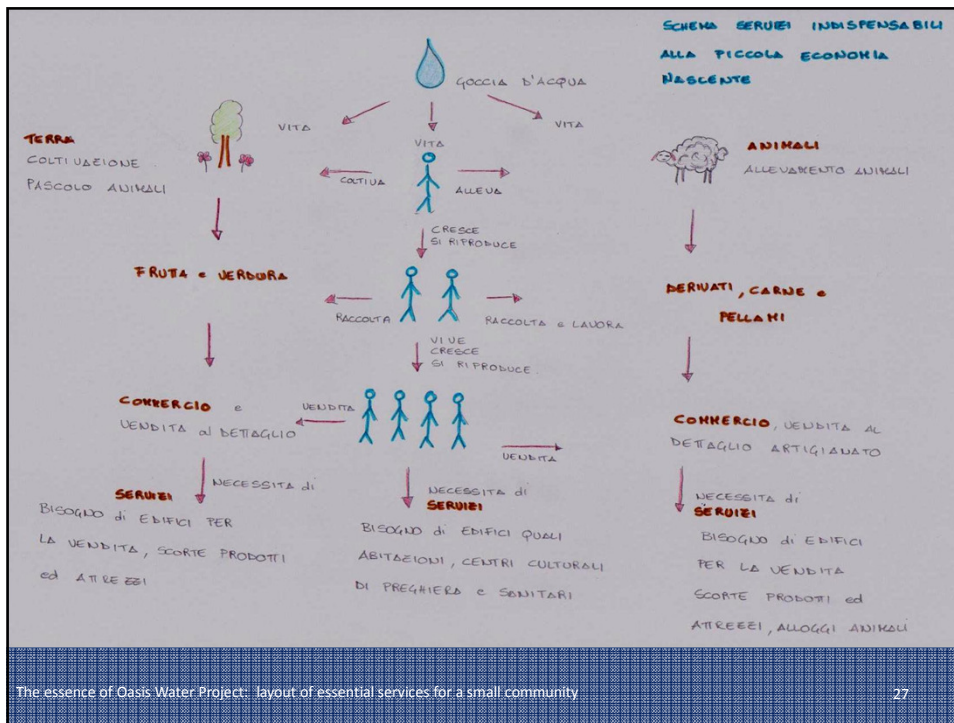 SCHEMA SERVIZI INDISPENSABILI
ALLA PICCOLA ECONOMIA
NASCENTE
GOCCIA D'ACQUA
VITA
VITA
VITA
TERRA
COLTIVAZIONE
PASCOLO ANIMALI
COLTIVA
ALLEVA
ANIMALI
ALLEVAMENTO ANIMALI
CRESCE
SI RIPRODUCE
FRUTTA e VERDURA
RACCOLTA
RACCOLTA e LAVORA
DERIVATI, CARNE e
PELLAMI
VIVE
CRESCE
SI RIPRODUCE
COMMERCIO e
VENDITA al DETTAGLIO
VENDITA
VENDITA
COMMERCIO, VENDITA AL
DETTAGLIO ARTIGIANATO
NECESSITA di
SERVIZI
BISOGNO di EDIFICI PER
LA VENDITA, SCORTE PRODOTTI
ed ATTREZZI
NECESSITA di
SERVIZI
BISOGNO di EDIFICI QUALI
ABITAZIONI, CENTRI CULTURALI
DI PREGHIERA e SANITARI
NECESSITA di
SERVIZI
BISOGNO di EDIFICI
PER LA VENDITA
SCORTE PRODOTTI ed
ATTREZZI, ALLOGGI ANIMALI
The essence of Oasis Water Project: layout of essential services for a small community
27